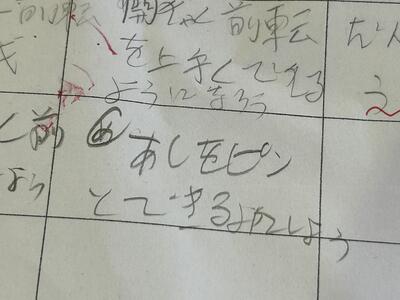 前転
開きゃく前転
を上手くできる
ようになろう
く前
よう
め
あしをピン
とできるようにしよう